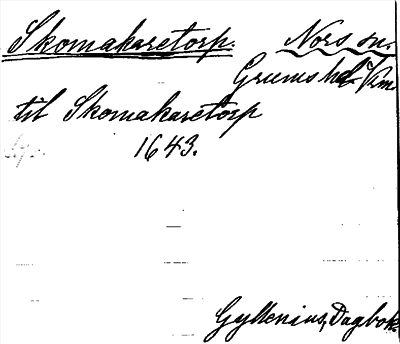 Skomakaretorp. Nors sn.
Grums hd. Vrm.
til Skomakaretorp
1643.
Gyllenius, Dagbok.